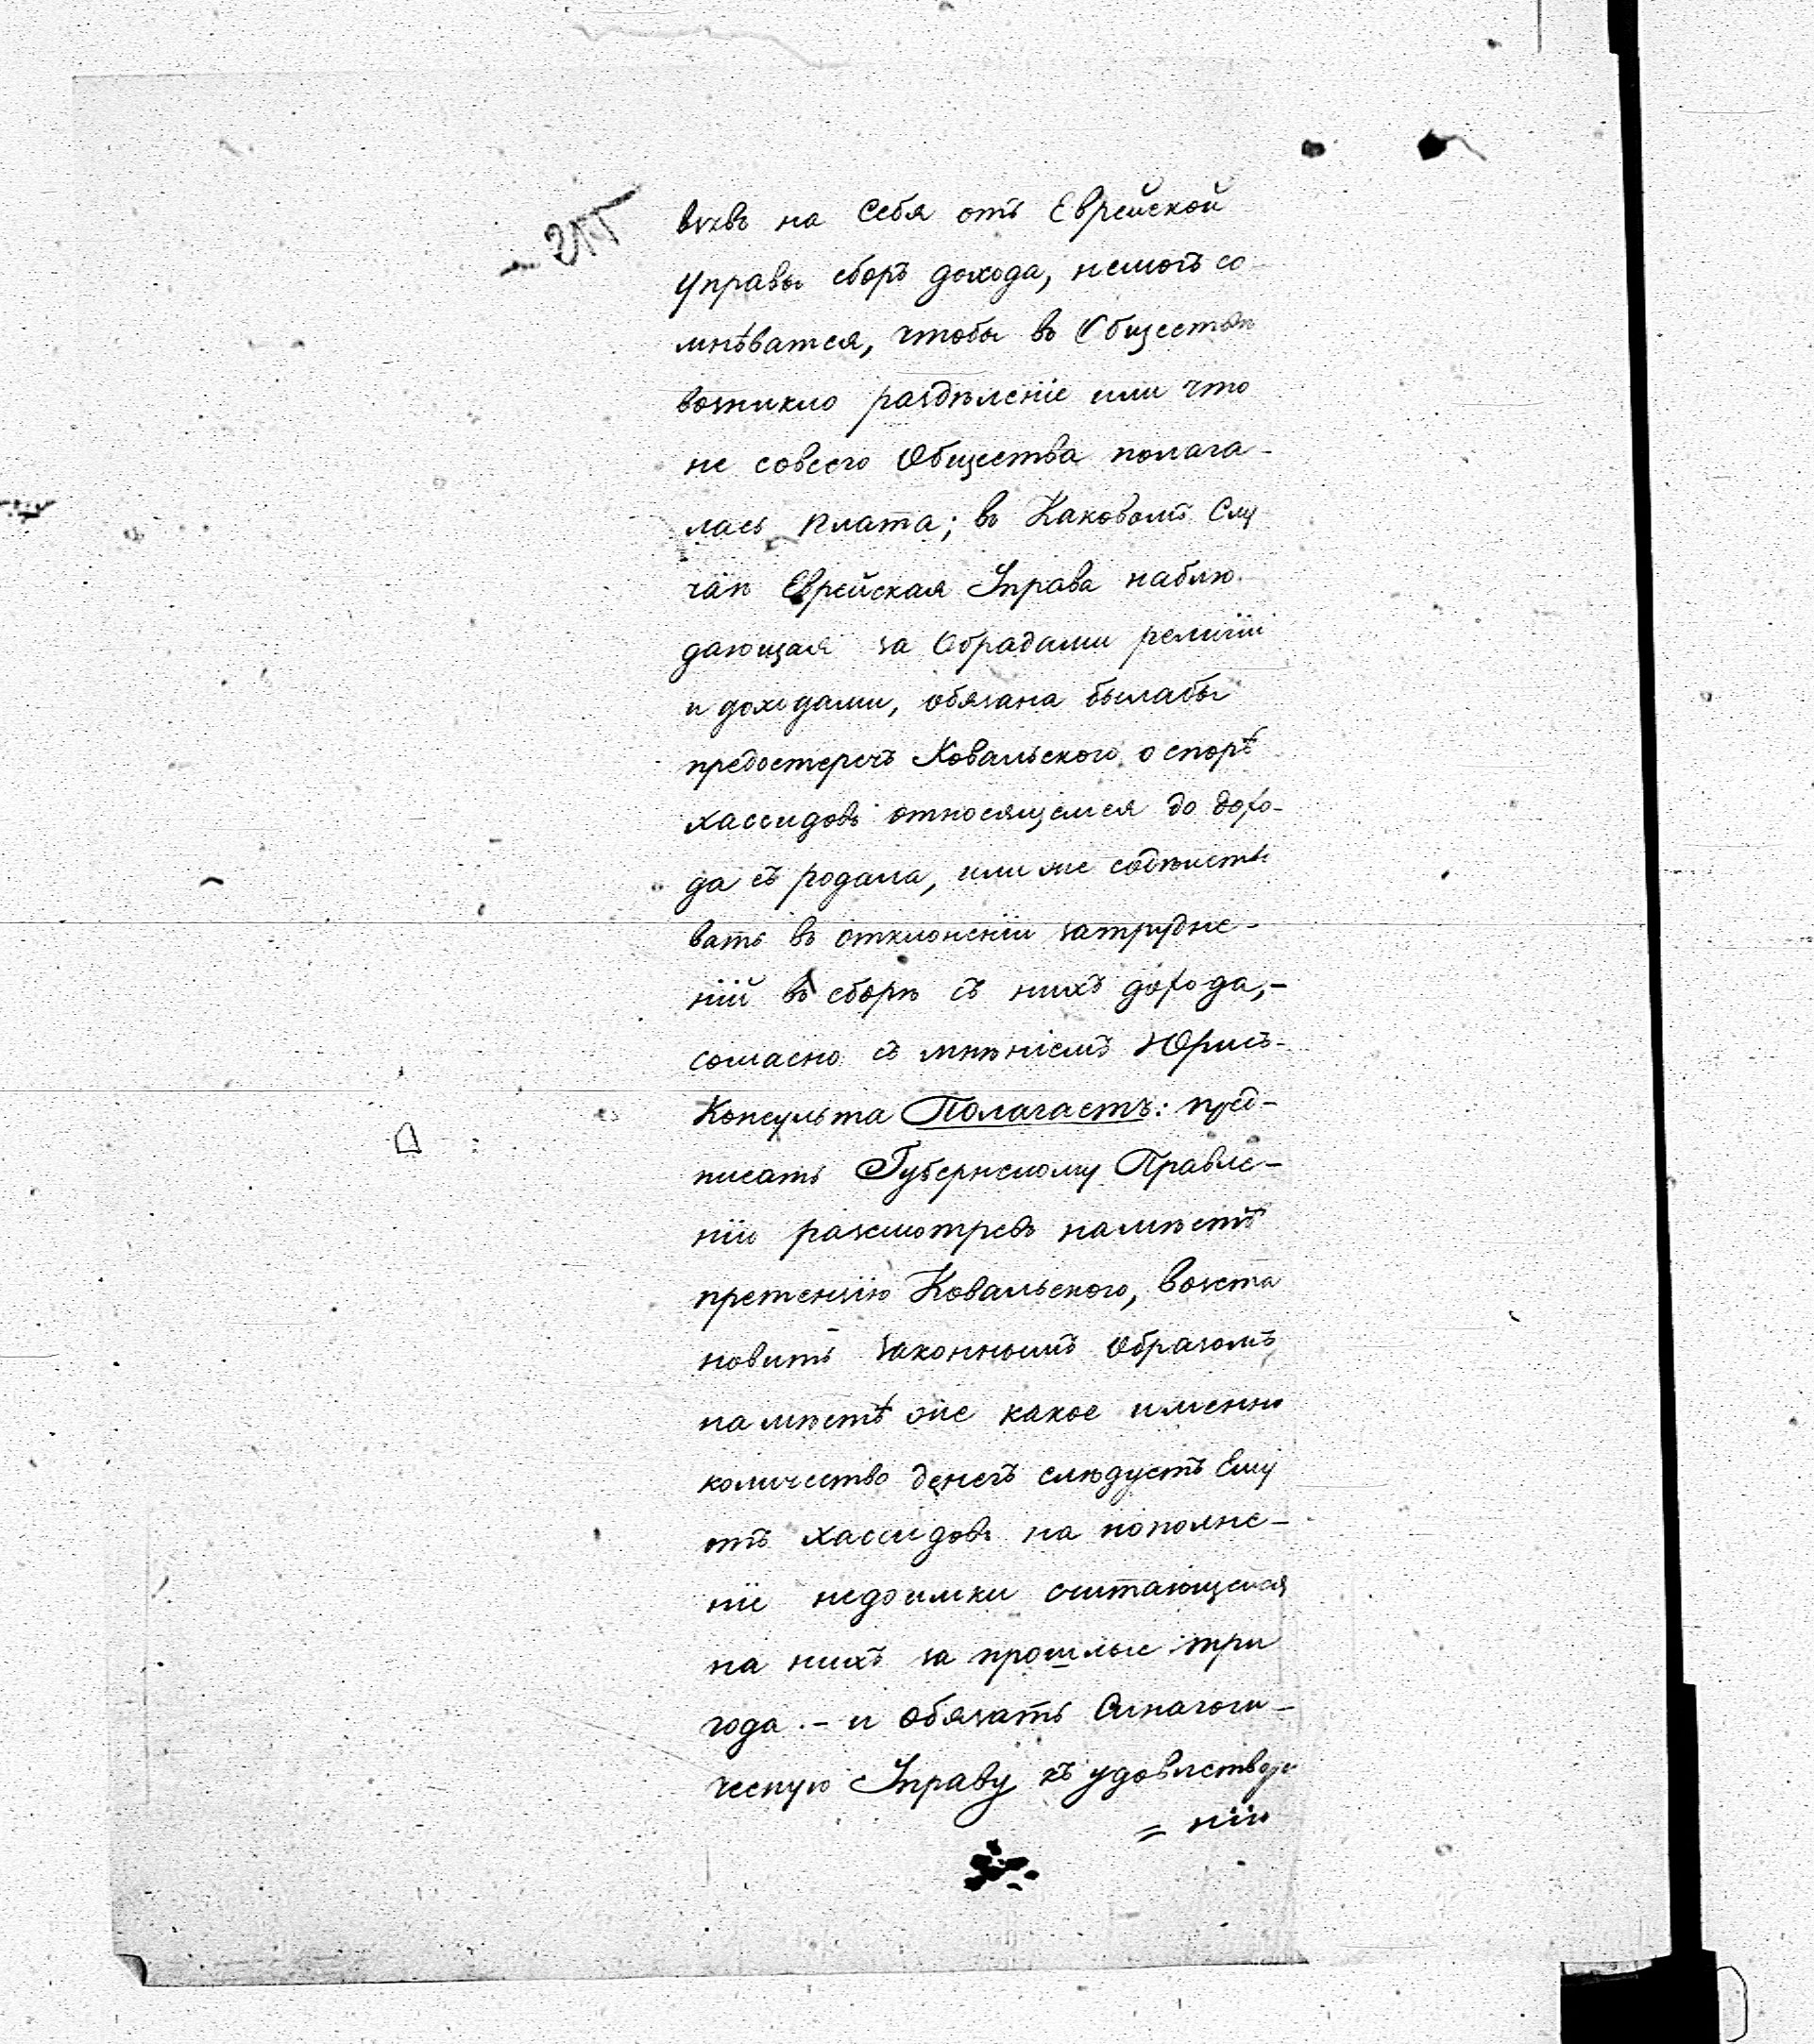 взявъ на Себя отъ Еврейской
Управы сборъ дохода, немогъ со-
мнѣватся, чтобы въ Обществѣ
возникло раздѣленіе или что
не совсего Общества полага-
лась плата; въ Каковомъ Слу
чаѣ Еврейская Управа наблю-
дающая за Обрадами религіи
и доходами, обязана былабы
предостеречъ Ковальского о спорѣ
хассидовъ относящемся до дохо-
да съ родала, или же содѣйство
вать въ отклоненіи затрудне-
ній въ сборѣ съ нихъ дохода,-
согласно съ мнѣніемъ Юрисъ-
Консульта Полагаетъ: пред-
писать Губернскому Правле-
нію разсмотревъ намѣстѣ
претензію Ковальского, возста
новить законнымъ Образомъ,
намѣстѣ же какое именно
количество денегъ слѣдуетъ Ему
отъ хассидовъ на пополне-
ніе недоимки считающейся
на нихъ за прошлые три
года.- и Обязать Синагоги-
ческую Управу къ удовлетворе
= нію